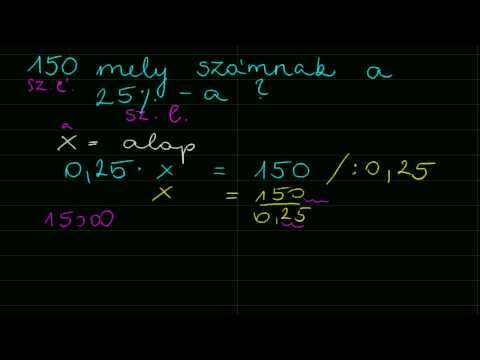 150 mely számnak a
sz.é.
25% - a ?
sz. l.
a
x = alap
0,25 · x = 150 /:0,25
x = 150/0,25
15000